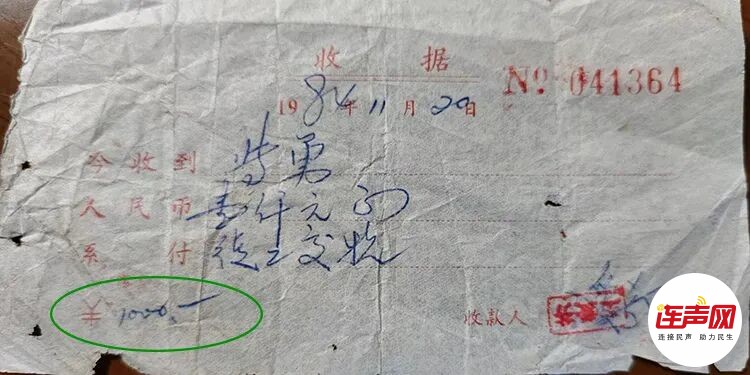 收 据
No 041364
1984年11月20日
今收到 勇
人民币 壹仟元正
系 付 交
¥ 1000.—
收款人
连声网
连接民声 助力民生